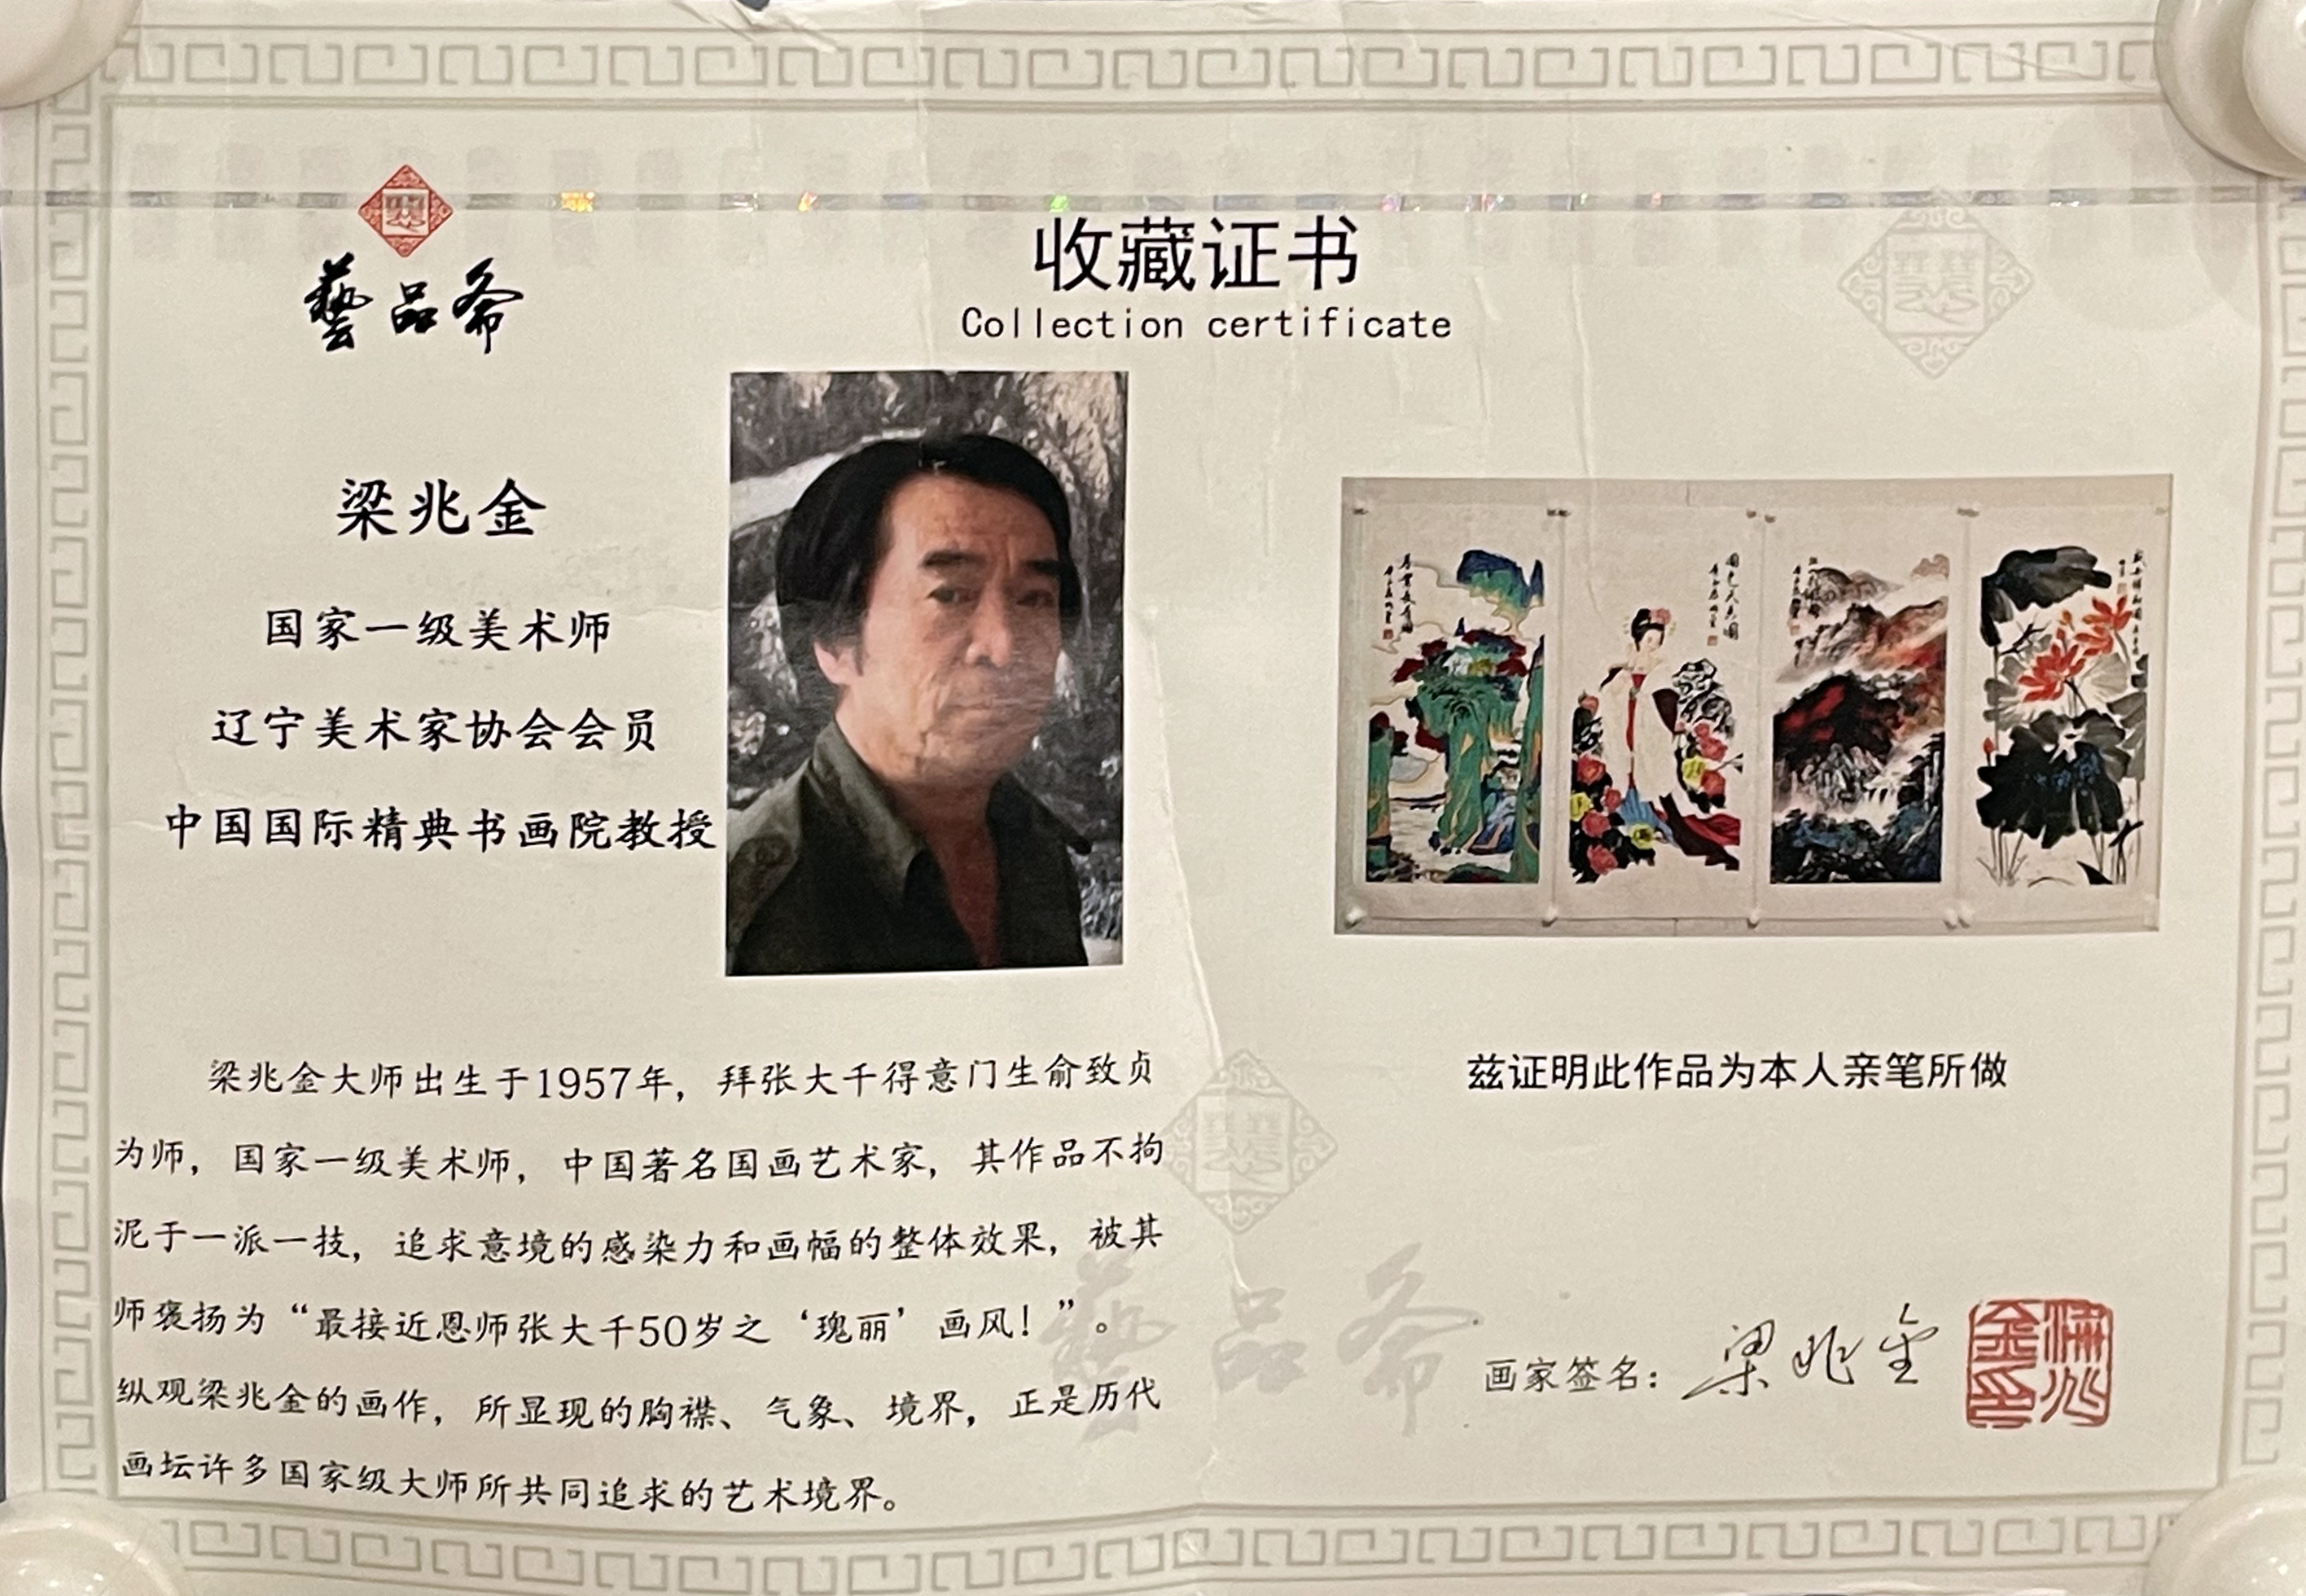 藝品斋
收藏证书
Collection certificate
梁兆金
国家一级美术师
辽宁美术家协会会员
中国国际精典书画院教授
梁兆金大师出生于1957年，拜张大千得意门生俞致贞
为师，国家一级美术师，中国著名国画艺术家，其作品不拘
泥于一派一技，追求意境的感染力和画幅的整体效果，被其
师褒扬为“最接近恩师张大千50岁之‘瑰丽’画风！”。
纵观梁兆金的画作，所显现的胸襟、气象、境界，正是历代
画坛许多国家级大师所共同追求的艺术境界。
国色天香图
兹证明此作品为本人亲笔所做
藝品斋
画家签名：梁兆金